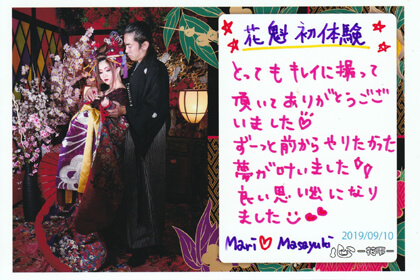 花魁 初体験
とってもキレイに撮って
頂いてありがとうござ
いました♡
ずーっと前からやりたかった
夢が叶いました!!
良い思い出になり
ました
2019/09/10
Mari ♡ Masayuki
心 -花雫-